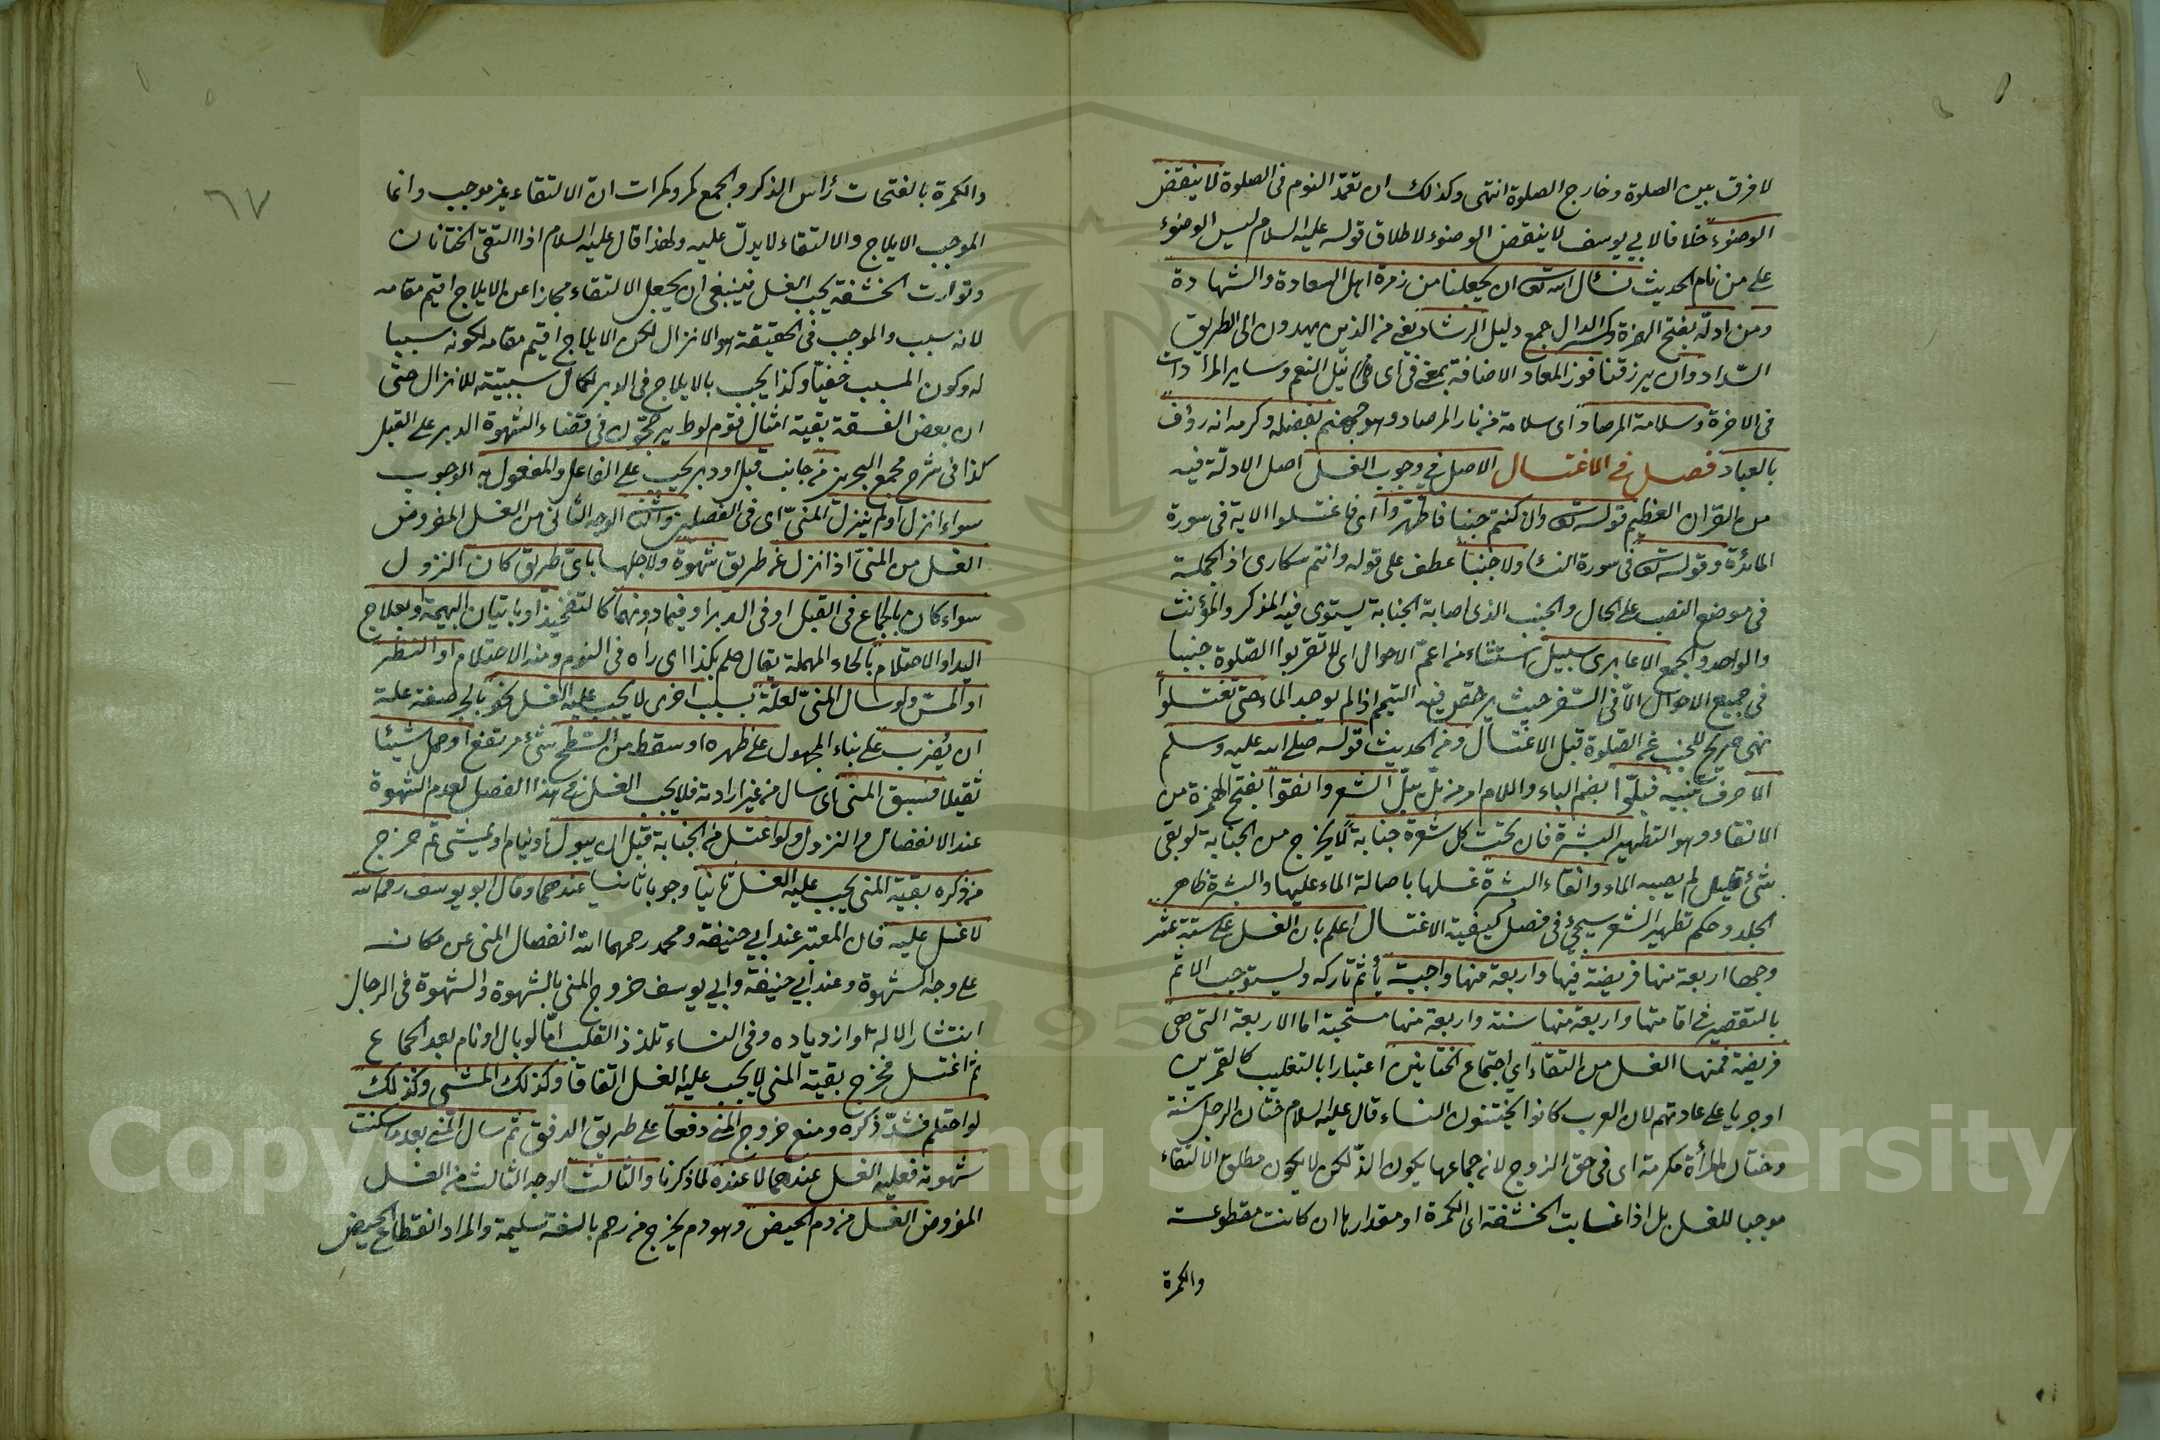 لا فرق بين الصلوة وخارج الصلوة انتهى وكذلك ان تعمد النوم فى الصلوة لا ينقض
الوضوء خلافا لابي يوسف لا ينقض الوضوء لاطلاق قوله عليه السلام ليس الوضوء
على من نام الحديث نسأل الله تعالى ان يجعلنا من زمرة اهل السعادة والشهادة
ومن ادلة بفتح الهمزة وكسر الدال جمع دليل الرشاد يعني من الذين يهدون الى الطريق
السداد وان يرزقنا فوز المعاد الاضافة بمعنى فى اى نيل النعم وساير المرادات
فى الاخرة وسلامة المرصاد اى سلامة من نار المرصاد وهو جهنم بفضله وكرمه انه رؤف
بالعباد فصل في الاغتسال الاصل في وجوب الغسل اصل الادلة فيه
من القران العظيم قوله تعالى وان كنتم جنبا فاطهروا اى فاغتسلوا الاية فى سورة
المائدة وقوله تعالى فى سورة النساء ولا جنبا عطف على قوله وانتم سكارى اذ الجملة
فى موضع النصب على الحال والجنب الذى اصابة الجنابة يستوى فيه المذكر والمؤنث
والواحد والجمع الا عابرى سبيل استثناء من اعم الاحوال اى لا تقربوا الصلوة جنبا
فى جميع الاحوال الا فى السفر حيث يرخص فيه التيمم اذا لم يوجد الماء حتى تغتسلوا
نهى صريح للجنب عن الصلوة قبل الاغتسال ومن الحديث قوله صلى الله عليه وسلم
الا حرف تنبيه فبلوا بضم الباء واللام امر من بل يبل الشعر وانقوا بفتح الهمزة من
الانقاء وهو التطهير البشرة فان تحت كل شعرة جنابة لا يخرج من الجنابة لو بقى
شئ قليل لم يصبه الماء وانقاء البشرة غسلها باصالة الماء عليها والبشرة ظاهر
الجلد وحكم تطهير الشعر سيجئ فى فصل كيفية الاغتسال اعلم بان الغسل على ستة عشر
وجها اربعة منها فريضة فيها واربعة منها واجبة يأثم تاركه ويستوجب الاثم
بالتقصير في اقامتها واربعة منها سنة واربعة منها مستحبة اما الاربعة التى هى
فريضة فمنها الغسل من التقاء اى اجتماع الختانين اعتبارا بالتغليب كالقمرين
او جريا على عادتهم لان العرب كانوا يختنون النساء قال عليه السلام ختان الرجل سنة
وختان المرأة مكرمة اى فى حق الزوج لانه جماعها يكون الذ لكن لا يكون مطلق الالتقاء
موجبا للغسل بل اذا غابت الحشفة اى الكمرة او مقدارها ان كانت مقطوعة
والكمرة
٦٧
والكمرة بالفتحات رأس الذكر والجمع كمر وكمرات ان الالتقاء غير موجب وانما
الموجب الايلاج والالتقاء لا يدل عليه ولهذا قال عليه السلام اذا التقى الختانان
وتوارت الحشفة يجب الغسل فينبغى ان يجعل الالتقاء مجازا عن الايلاج اقيم مقامه
لانه سبب والموجب فى الحقيقة هو الانزال لكن الايلاج اقيم مقامه لكونه سببا
له وكون المسبب خفيا وكذا يجب بالايلاج فى الدبر لكمال سببيته للانزال حتى
ان بعض الفسقة بقية امثال قوم لوط يرجحون فى قضاء الشهوة الدبر على القبل
كذا فى شرح مجمع البحرين من جانب قبل او دبر يجب على الفاعل والمفعول به الوجوب
سواء انزل او لم ينزل المني اى فى الفصلين والثانى الوجه الثانى من الغسل المفروض
الغسل من المنى اذا انزل عن طريق شهوة ولاجلها باى طريق كان النزول
سواء كان بالجماع فى القبل او فى الدبر او فيما دونهما كالتفخيذ او باتيان البهيمة او بعلاج
اليد او الاحتلام بالحاء المهملة يقال حلم بكذا اى راه فى النوم ومنه الاحتلام او النظر
او المس ولو سال المنى لعلة بسبب اخرى لا يجب عليه الغسل نحو بالجر صفة علة
ان يضرب على بناء المجهول على ظهره او سقط من السطح شئ مرتفع او حمل شيئا
ثقيلا فسبق المنى اى سال من غير ارادته فلا يجب الغسل في هذا الفصل لعدم الشهوة
عند الانفصال والنزول ولو اغتسل من الجنابة قبل ان يبول او ينام او يمشى ثم خرج
من ذكره بقية المنى يجب عليه الغسل ثانيا وجوبا ثانيا عندهما وقال ابو يوسف رحمه الله
لا غسل عليه فان المعتبر عند ابي حنيفة ومحمد رحمهما الله انفصال المنى عن مكانه
على وجه الشهوة وعند ابي حنيفة وابي يوسف خروج المنى بالشهوة والشهوة فى الرجال
انتشار الالة او ازدياده وفى النساء تلذذ القلب اما لو بال او نام بعد الجماع
ثم اغتسل فخرج بقية المنى لا يجب عليه الغسل اتفاقا وكذلك المشى وكذلك
لو احتلم فشد ذكره ومنع خروج المنى دفعا على طريق الدفق ثم سال المنى بعد ما سكنت
شهوته فعليه الغسل عندهما لا عنده لما ذكرنا والثالث الوجه الثالث من الغسل
المفروض الغسل من دم الحيض وهو دم يخرج من رحم بالغة سليمة والمراد انقطاع الحيض
Copyright © King Saud University
195